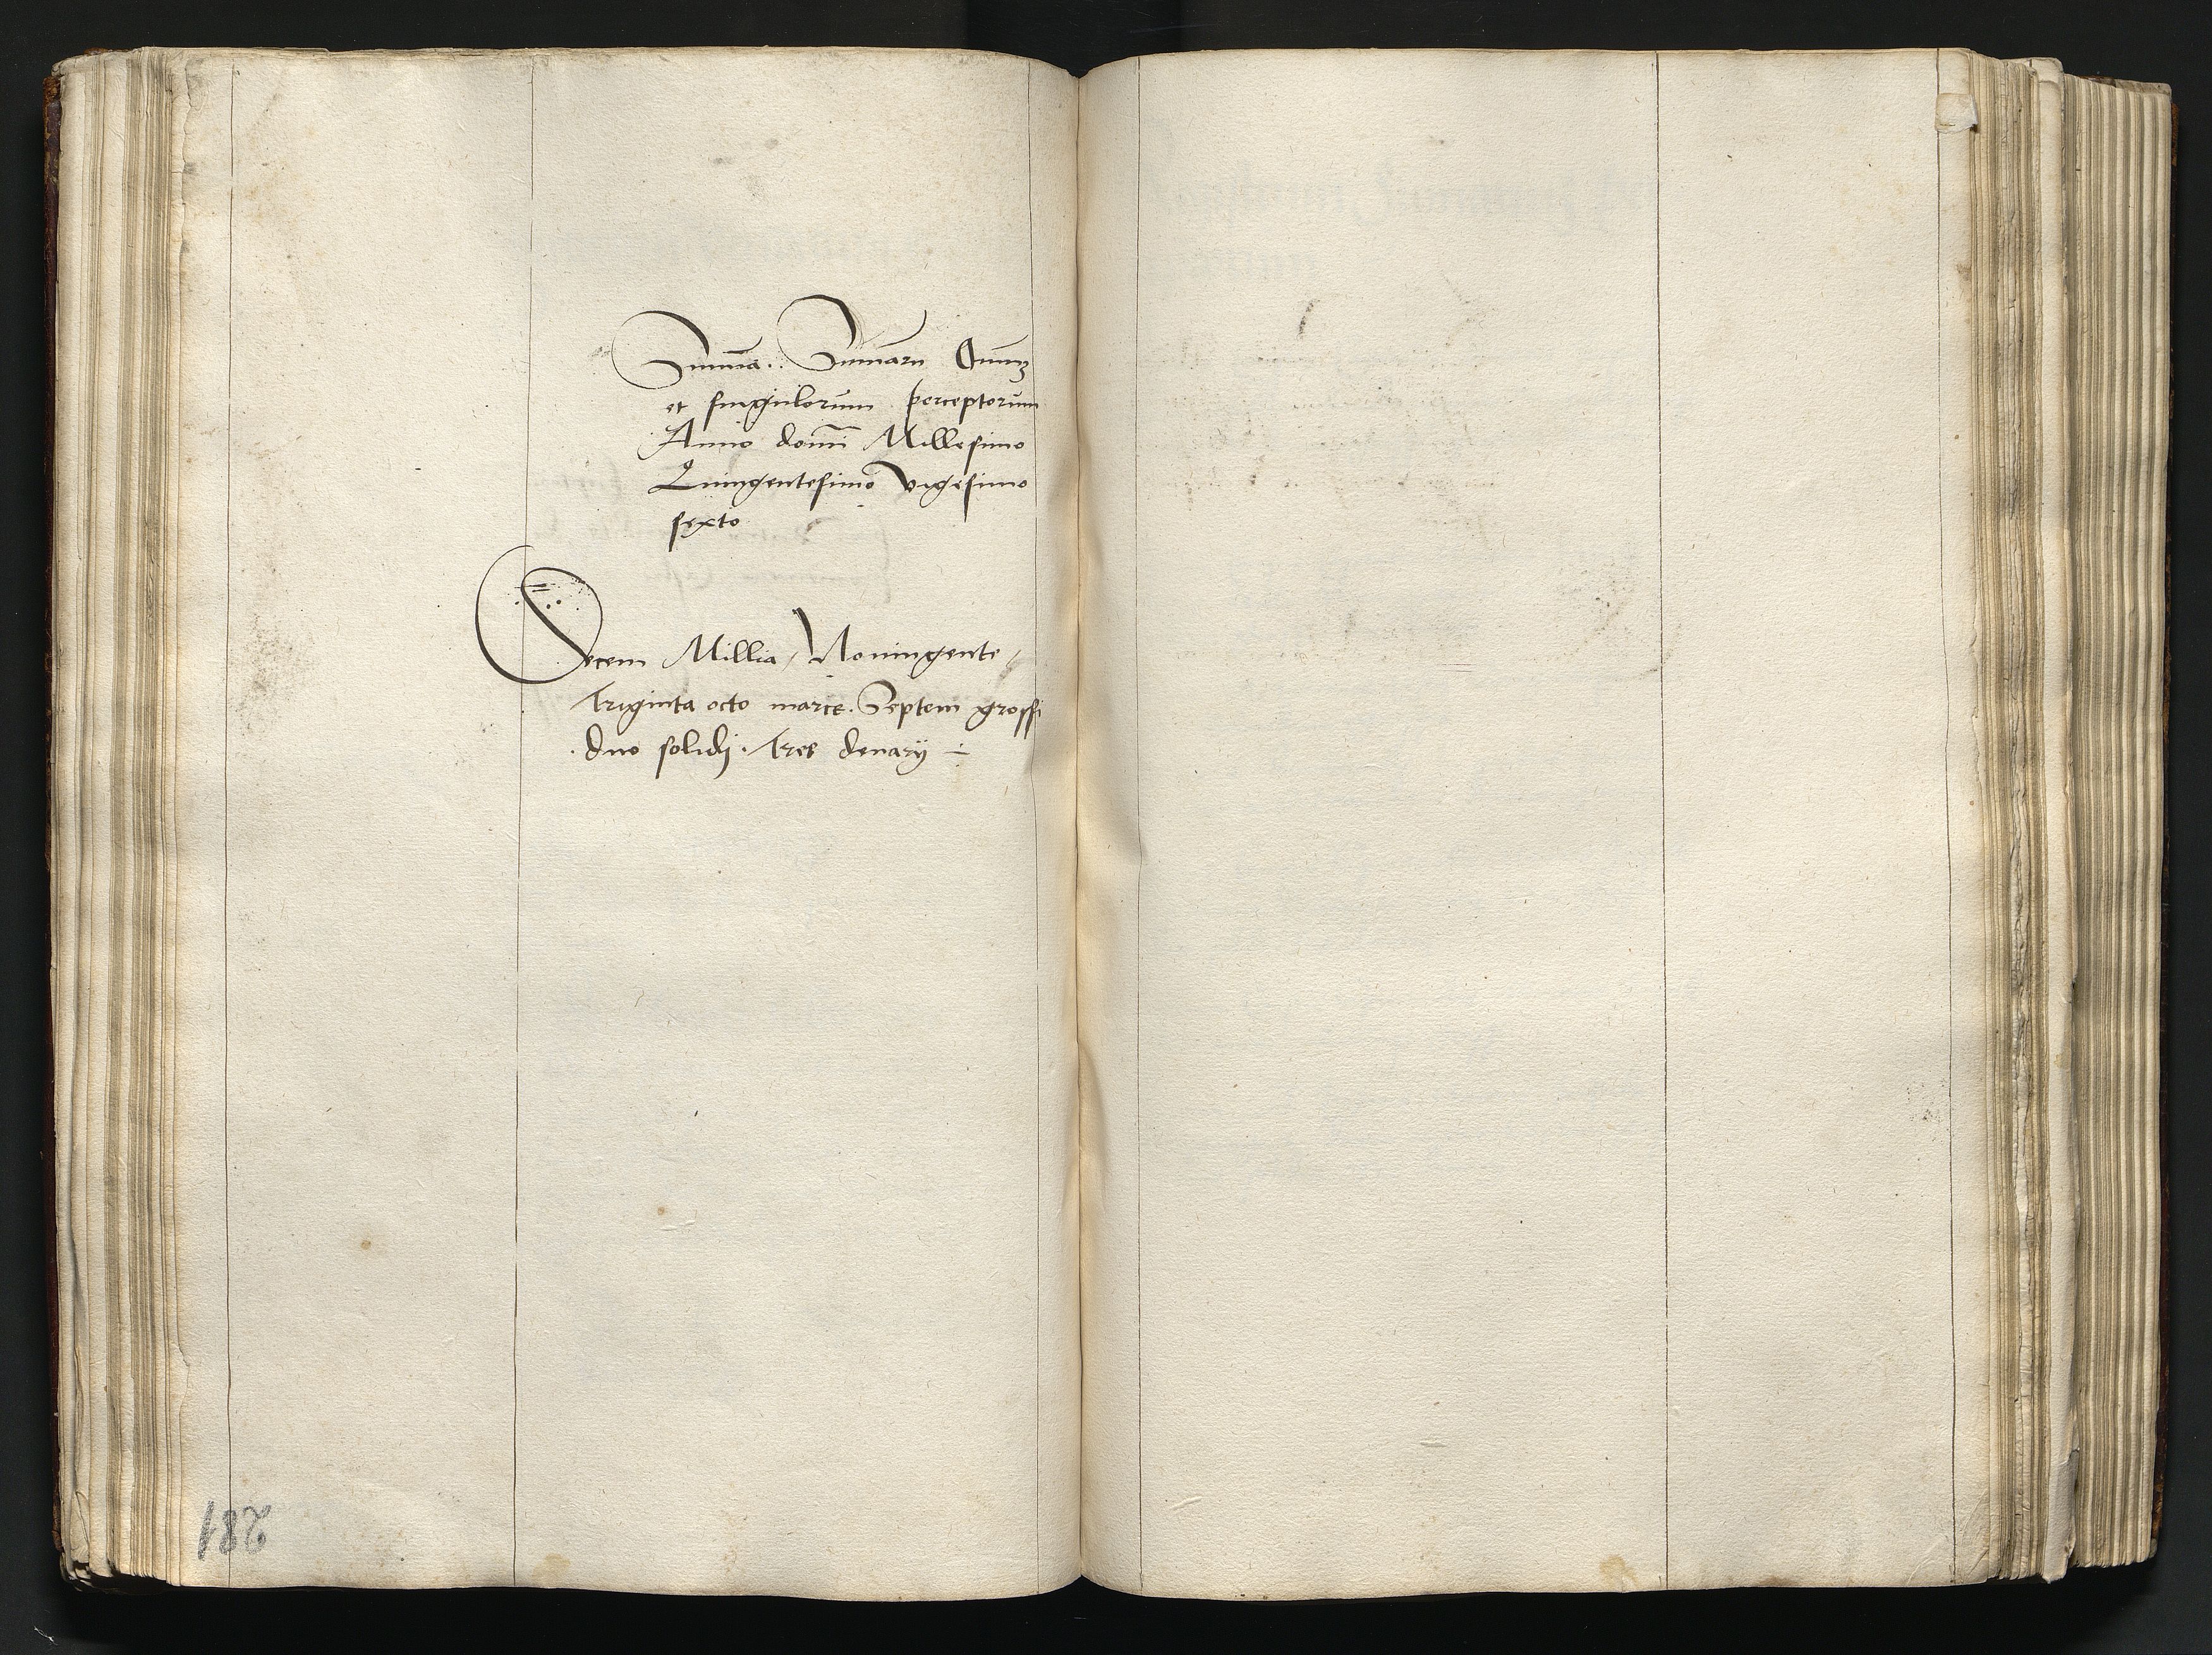 Summa Sumarū Oīum
et singulorum perceptorum
Anno domī Millesimo
Quingentesimo vigesimo
sexto
Decem Millia / Noningente /
Triginta octo marce . Septem grossi
. duo solidj . Tres denarij ÷
281